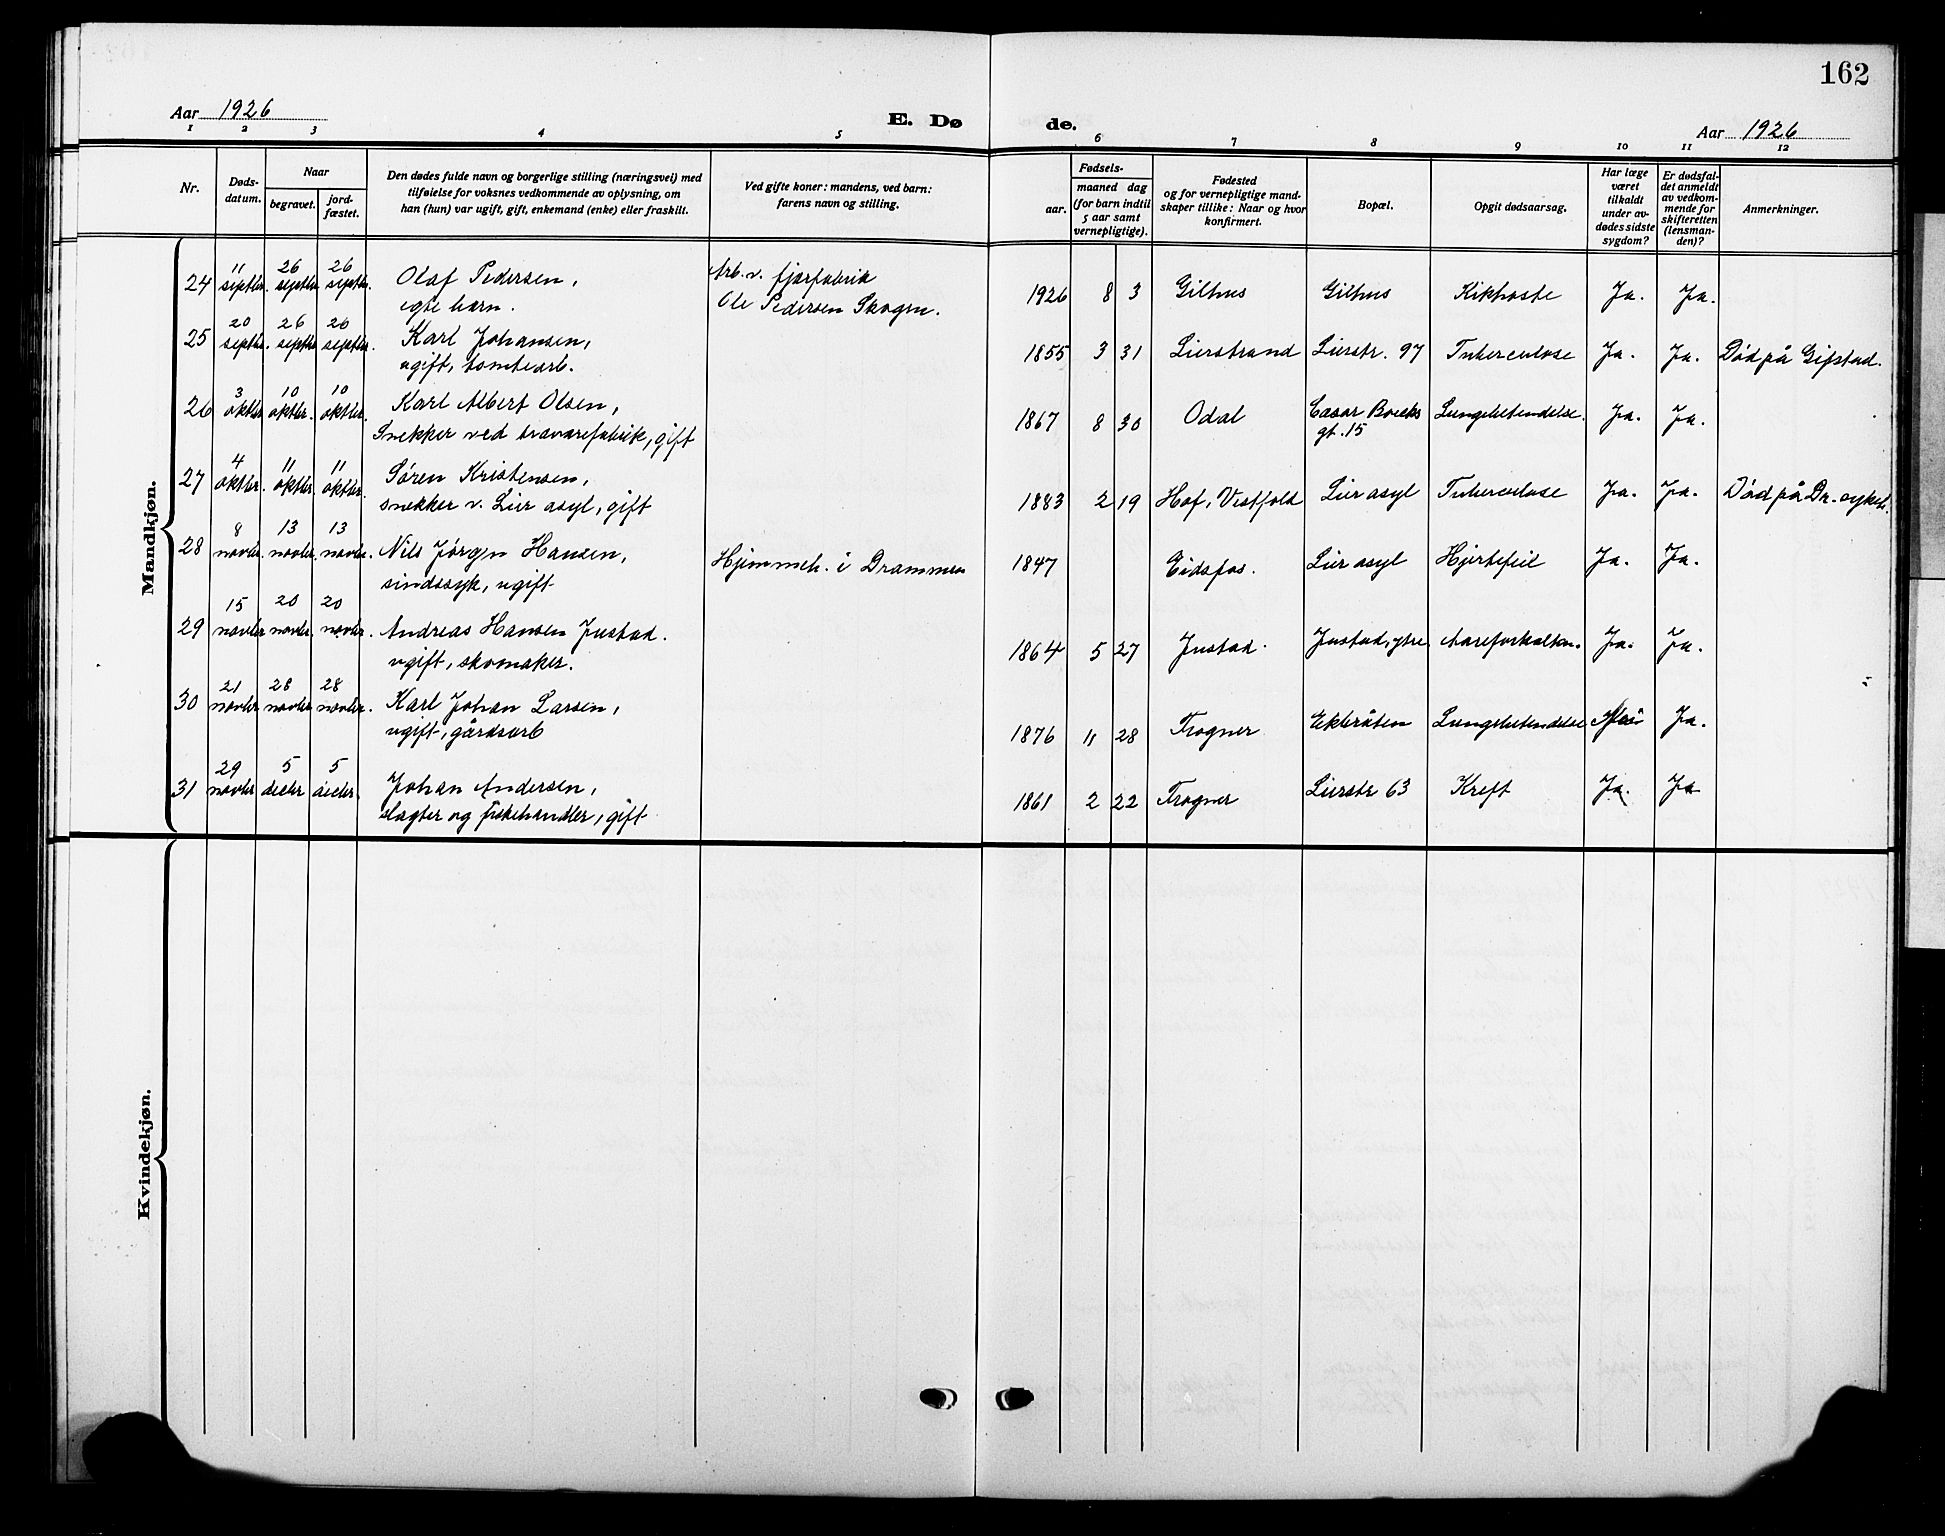 162
Aar 1926
E. Dø de.
Aar 1926
1 2 3 4 5 6 7 8 9 10 11 12
Nr.
Døds-
datum.
Naar
begravet.
jord-
fæstet.
Den dødes fulde navn og borgerlige stilling (næringsvei) med
tilføielse for voksnes vedkommende av oplysning, om
han (hun) var ugift, gift, enkemand (enke) eller fraskilt.
Ved gifte koner: mandens, ved barn:
farens navn og stilling.
Fødsels-
aar.
maaned dag
(for barn indtil
5 aar samt
vernepligtige).
Fødested
og for vernepligtige mand-
skaper tillike: Naar og hvor
konfirmert.
Bopæl.
Opgit dødsaarsag.
Har læge
været
tilkaldt
under av-
dødes sidste
sygdom?
Er dødsfal-
det anmeldt
av vedkom-
mende for
skifteretten
(lensman-
den)?
Anmerkninger.
Mandkjøn.
24 11 septbr. 26 septbr. 26 septbr. Olaf Pedersen,
egte barn.
Arb. v. fjærfabrik
Ole Pedersen Skogen.
1926 8 3 Gilhus Gilhus Kikhoste Ja. Ja.
25 20 septbr. 26 septbr. 26 septbr. Karl Johansen,
ugift, tomtearb.
1855 3 31 Lierstrand Lierstr. 97 Tuberculose Ja. Ja. Død på Gifstad.
26 3 oktbr. 10 oktbr. 10 oktbr. Karl Albert Olsen,
Snekker ved trævarefabrik, gift
1867 8 30 Odal Cæsar Boecks
gt. 15
Lungebetendelse. Ja. Ja.
27 4 oktbr. 11 oktbr. 11 oktbr. Søren Kristensen,
snekker v. Lier asyl, gift
1883 2 19 Hof, Vestfold Lier asyl Tuberculose Ja. Ja. Død på Dr. sykeh.
28 8 novbr. 13 novbr. 13 novbr. Nils Jørgen Hansen,
sindssyk, ugift
Hjemmeh. i Drammen
1847 Eidsfos. Lier asyl Hjertefeil Ja. Ja.
29 15 novbr. 20 novbr. 20 novbr. Andreas Hansen Justad.
ugift, skomaker.
1864 5 27 Justad. Justad, ytre. Aareforkalkn. Ja. Ja.
30 21 novbr. 28 novbr. 28 novbr. Karl Johan Larsen,
ugift, gårdsarb
1876 11 28 Frogner Eklebråten Lungebetendelse Ja.
31 29 novbr 5 decbr 5 decbr. Johan Andersen,
slagter og fiskehandler, gift
1861 2 22 Frogner Lierstr 63 Kreft Ja. Ja
Kvindekjøn.